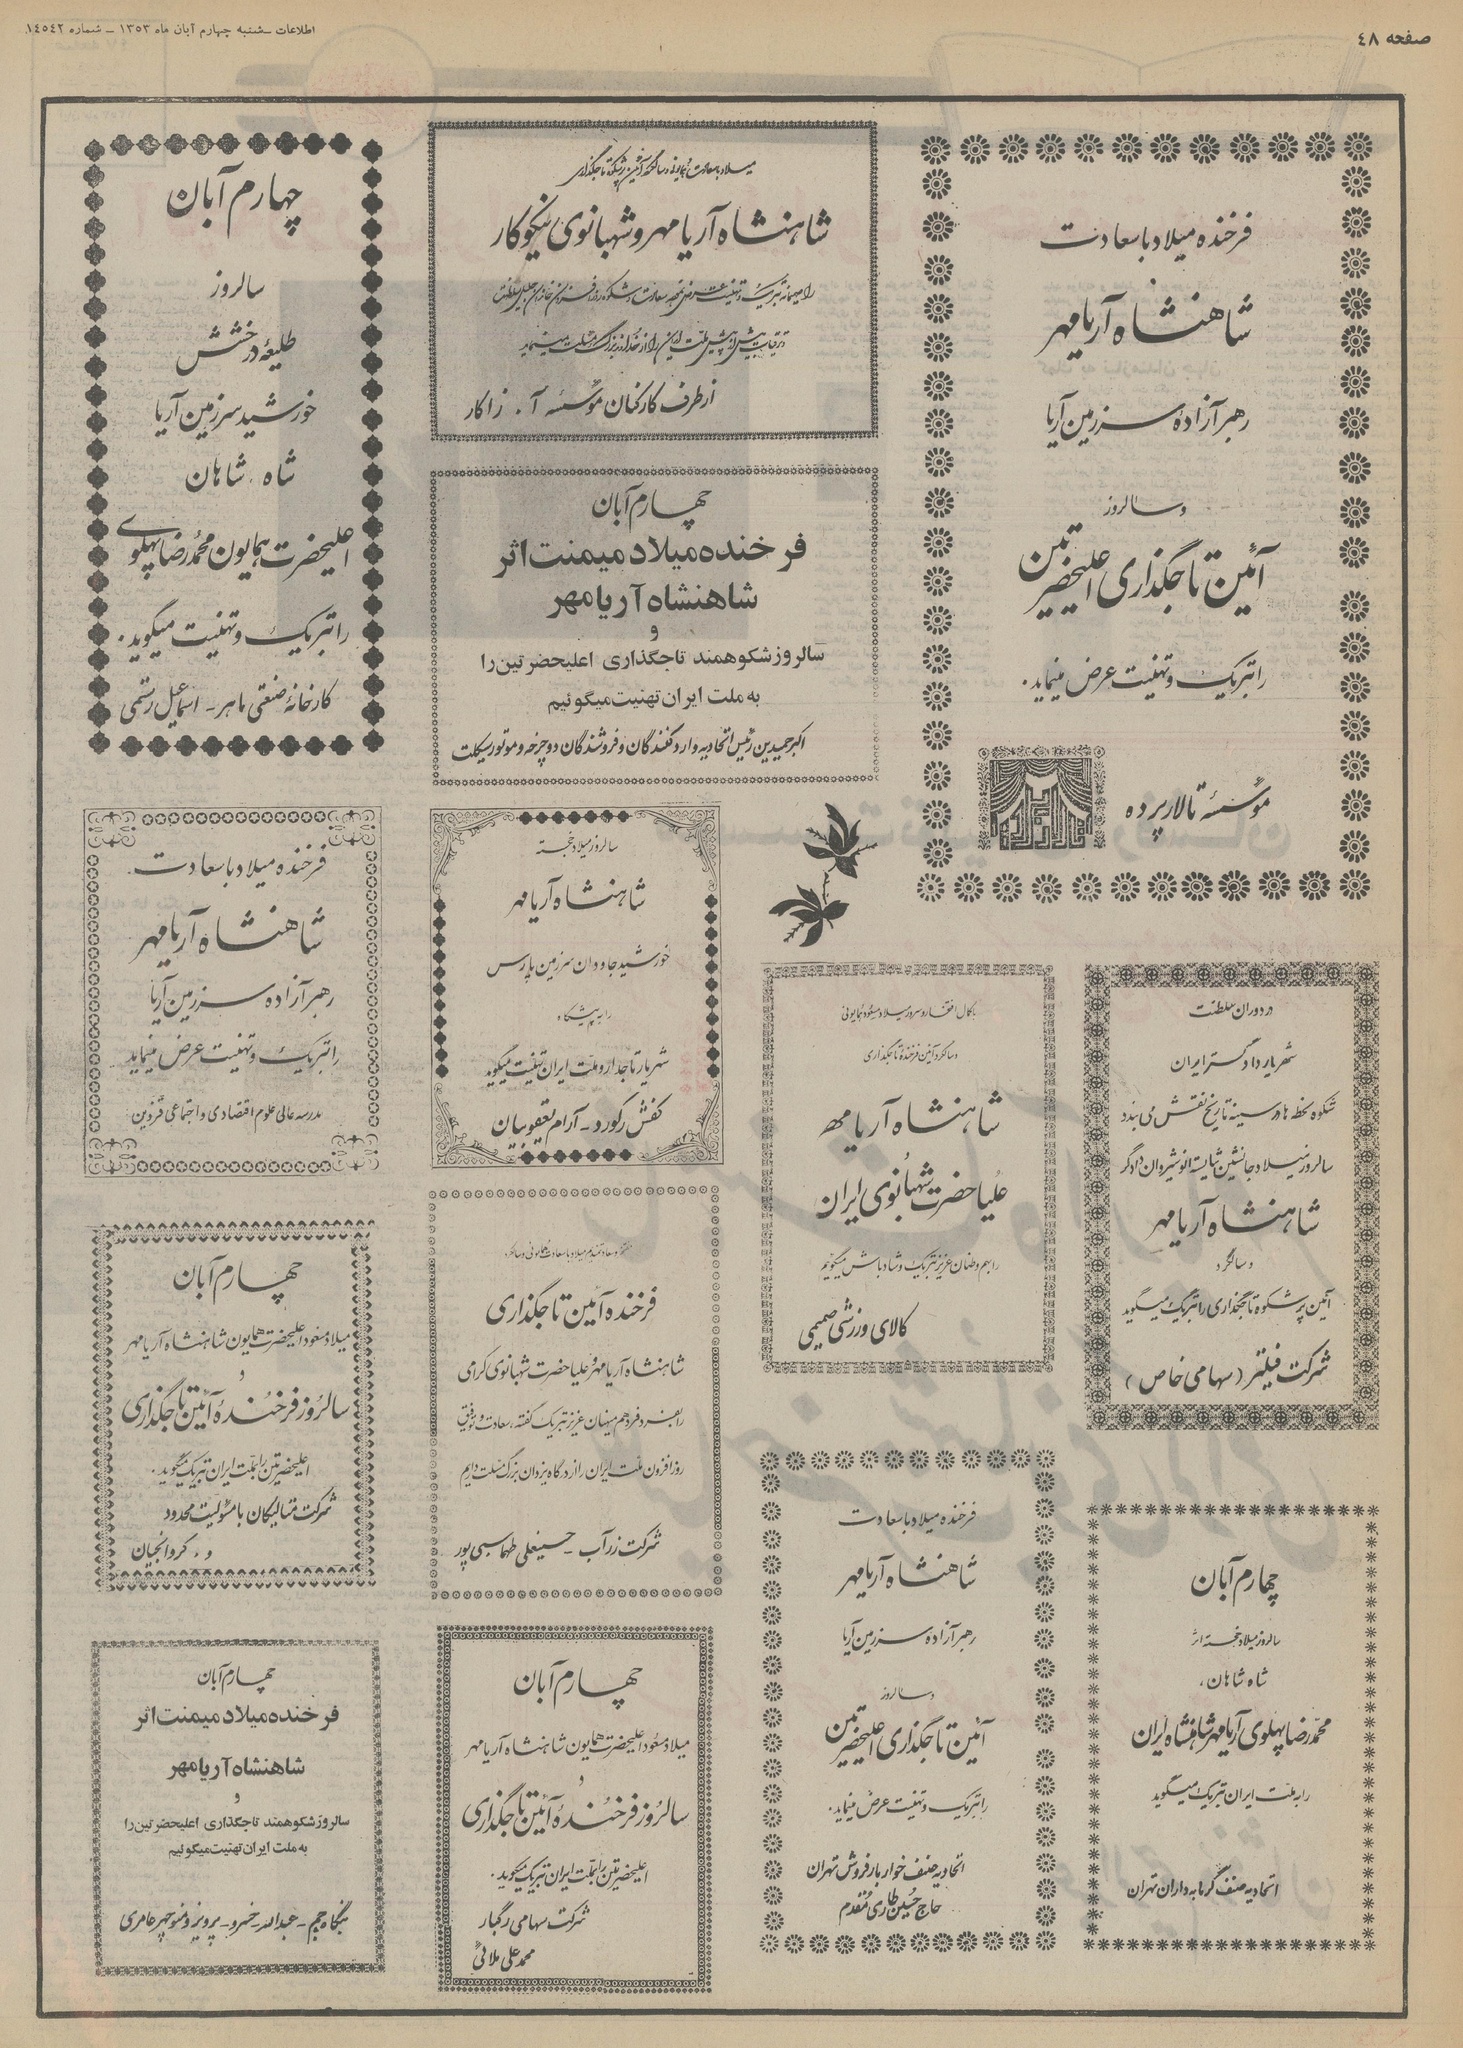 صفحه ٤٨
اطلاعات ــ شنبه چهارم آبان ماه ۱۳۵۳ ــ شماره ١٤٥٤٢
فرخنده میلاد باسعادت
شاهنشاه آریامهر
رهبر آزاده سرزمین آریا
و سالروز
آئین تاجگذاری اعلیحضرتین
را تبریک و تهنیت عرض مینماید.
مؤسسه تالار پرده
میلاد باسعادت همایونی و سالگرد آئین پرشکوه تاجگذاری
شاهنشاه آریامهر و شهبانوی نیکوکار
از طرف کارکنان مؤسسه آ. زاکار
چهارم آبان
فرخنده میلاد میمنت اثر
شاهنشاه آریامهر
و
سالروز شکوهمند تاجگذاری اعلیحضرتین را
به ملت ایران تهنیت میگوئیم
اکبر حمیدین رئیس اتحادیه وارد کنندگان و فروشندگان دوچرخه و موتور سیکلت
چهارم آبان
سالروز
طلیعه درخشش
خورشید سرزمین آریا
شاه شاهان
اعلیحضرت همایون محمدرضا پهلوی
را تبریک و تهنیت میگوید.
کارخانه صنعتی ماهر - اسماعیل رستمی
سالروز میلاد خجسته
شاهنشاه آریامهر
خورشید جاودان سرزمین پارس
را به پیشگاه
شهریار تاجدار و ملت ایران تهنیت میگوید
کفش رکورد - آرام یعقوبیان
فرخنده میلاد باسعادت
شاهنشاه آریامهر
رهبر آزاده سرزمین آریا
را تبریک و تهنیت عرض مینماید
مدرسه عالی علوم اقتصادی و اجتماعی قزوین
در دوران سلطنت
شهریار دادگستر ایران
شکوه لحظه ها در سینه تاریخ نقش می بندد
سالروز میلاد جانشین شایسته انوشیروان دادگر
شاهنشاه آریامهر
و سالگرد
آئین پرشکوه تاجگذاری را تبریک میگوید
شرکت فیلتر (سهامی خاص)
با کمال افتخار و سرور میلاد مسعود همایونی
و سالگرد آئین فرخنده تاجگذاری
شاهنشاه آریامهر
علیاحضرت شهبانوی ایران
را بهم وطنان عزیز تبریک و شادباش میگوئیم
کالای ورزشی صمیمی
فرخنده آئین تاجگذاری
شاهنشاه آریامهر و علیاحضرت شهبانوی گرامی
را بفرد فرد هم میهنان عزیز تبریک گفته، سعادت و توفیق
روزافزون ملت ایران را از درگاه یزدان بزرگ مسئلت داریم
شرکت زرآب - حسینعلی طهماسبی پور
چهارم آبان
میلاد مسعود اعلیحضرت همایون شاهنشاه آریامهر
و
سالروز فرخنده آئین تاجگذاری
اعلیحضرتین را بملت ایران تبریک میگوید.
شرکت متالیکان با مسئولیت محدود
چهارم آبان
سالروز میلاد خجسته اثر
شاه شاهان،
محمدرضا پهلوی آریامهر شاهنشاه ایران
را به ملت ایران تبریک میگوید
اتحادیه صنف گرمابه داران تهران
فرخنده میلاد باسعادت
شاهنشاه آریامهر
رهبر آزاده سرزمین آریا
و سالروز
آئین تاجگذاری اعلیحضرتین
را تبریک و تهنیت عرض مینماید.
اتحادیه صنف خواربار فروش تهران
حاج حسین طاری مقدم
چهارم آبان
میلاد مسعود اعلیحضرت همایون شاهنشاه آریامهر
و
سالروز فرخنده آئین تاجگذاری
اعلیحضرتین را بملت ایران تبریک میگوید.
شرکت سهامی رگبار
محمد علی ملائی
چهارم آبان
فرخنده میلاد میمنت اثر
شاهنشاه آریامهر
و
سالروز شکوهمند تاجگذاری اعلیحضرتین را
به ملت ایران تهنیت میگوئیم
بنگاه جم - عبدالله - خسرو - پرویز و منوچهر عامری